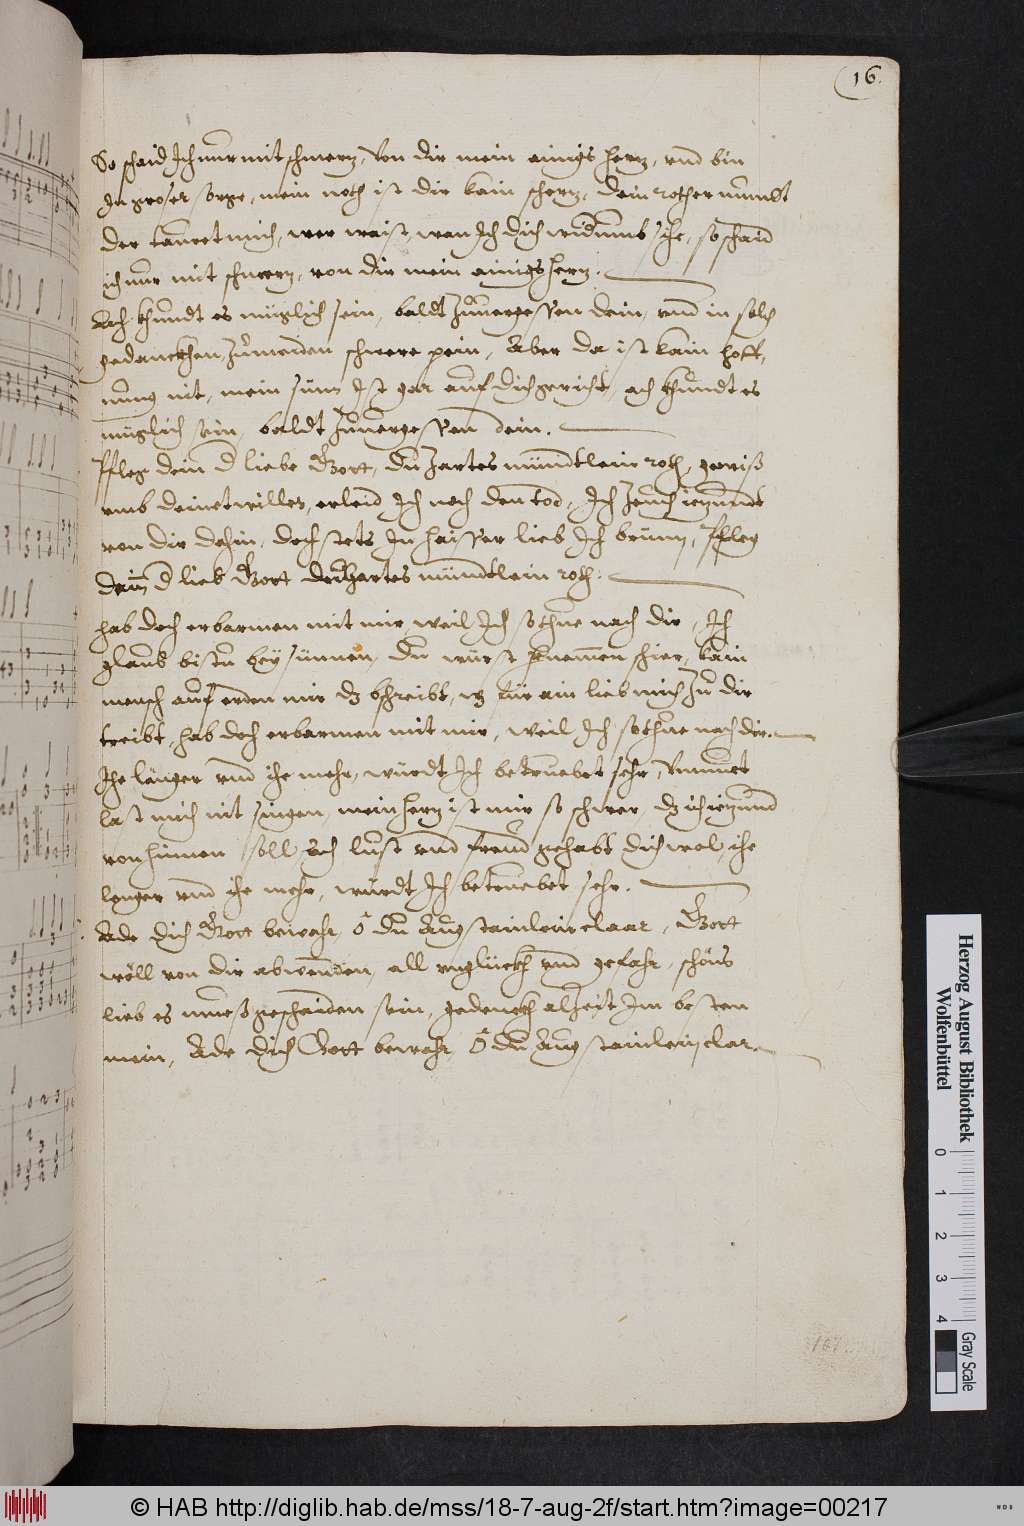 16.
So schaid Ich nur mit schmerz, von dir mein ainigs herz, vnd bin
In groser sorge, mein noth ist dir kain scherz, dein rother mundt
der tauret mich, wer waist wan Ich dich widrumb sihe, so schaid
ich nur mit schmerz, von dir mein ainigs herz.
Ach khundt es müglich sein, baldt zuuergessen dein, vnd in solch
gedanckhen, zu meiden schwere pein, Aber da ist kain hoff,
nung nit, mein sinn Ist gar auf dich gericht, ach khundt es
müglich sein, baldt zuuergessen dein.
Pfleg dein d liebe Gott, du zartes mündtlein roth, gewiß
vmb deinetwillen, erleid Ich noch den tod, Ich zeuch iezundt
von dir dahin, doch stets In haisser lieb Ich brünn, Pfleg
dein d lieb Gott du zartes mündtlein roth.
hab doch erbarmen mit mir, weil Ich sothue nach dir, Ich
glaub bistu bey sünnen, du würst khaumen schier, kain
mensch auf erden mir dz bschreibt, wz für ain lieb mich zu dir
treibt, hab doch erbarmen mit mir, weil Ich sothue nach dir.
Ihe länger vnd ihe mehr, würdt Ich betruebet sehr, vnmuet
last mich nit singen, mein herz ist mir so schwer, dz ich iezund
von hinnen soll, Ach lust vnd freud gehabt dich wol, ihe
lenger vnd ihe mehr, würdt Ich betruebet sehr.
Ade dich Gott bewahr, ô du Augstainlein claar, Gott
wöll von dir abwenden, all vnglückh vnd gefahr, schöns
lieb es mueß geschaiden sein, gedenckh alzeit Im besten
mein, Ade dich Gott bewahr, ô du Augstainlein clar.
Herzog August Bibliothek
Wolfenbüttel
0 1 2 3 4
Gray Scale
© HAB http://diglib.hab.de/mss/18-7-aug-2f/start.htm?image=00217